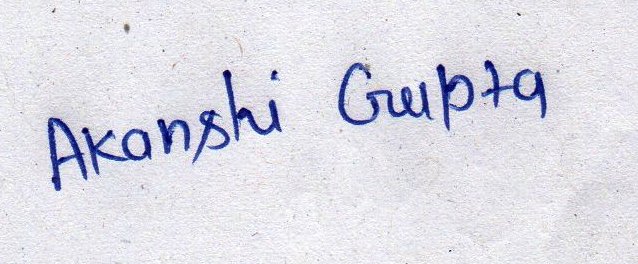 Akanshi Gupta